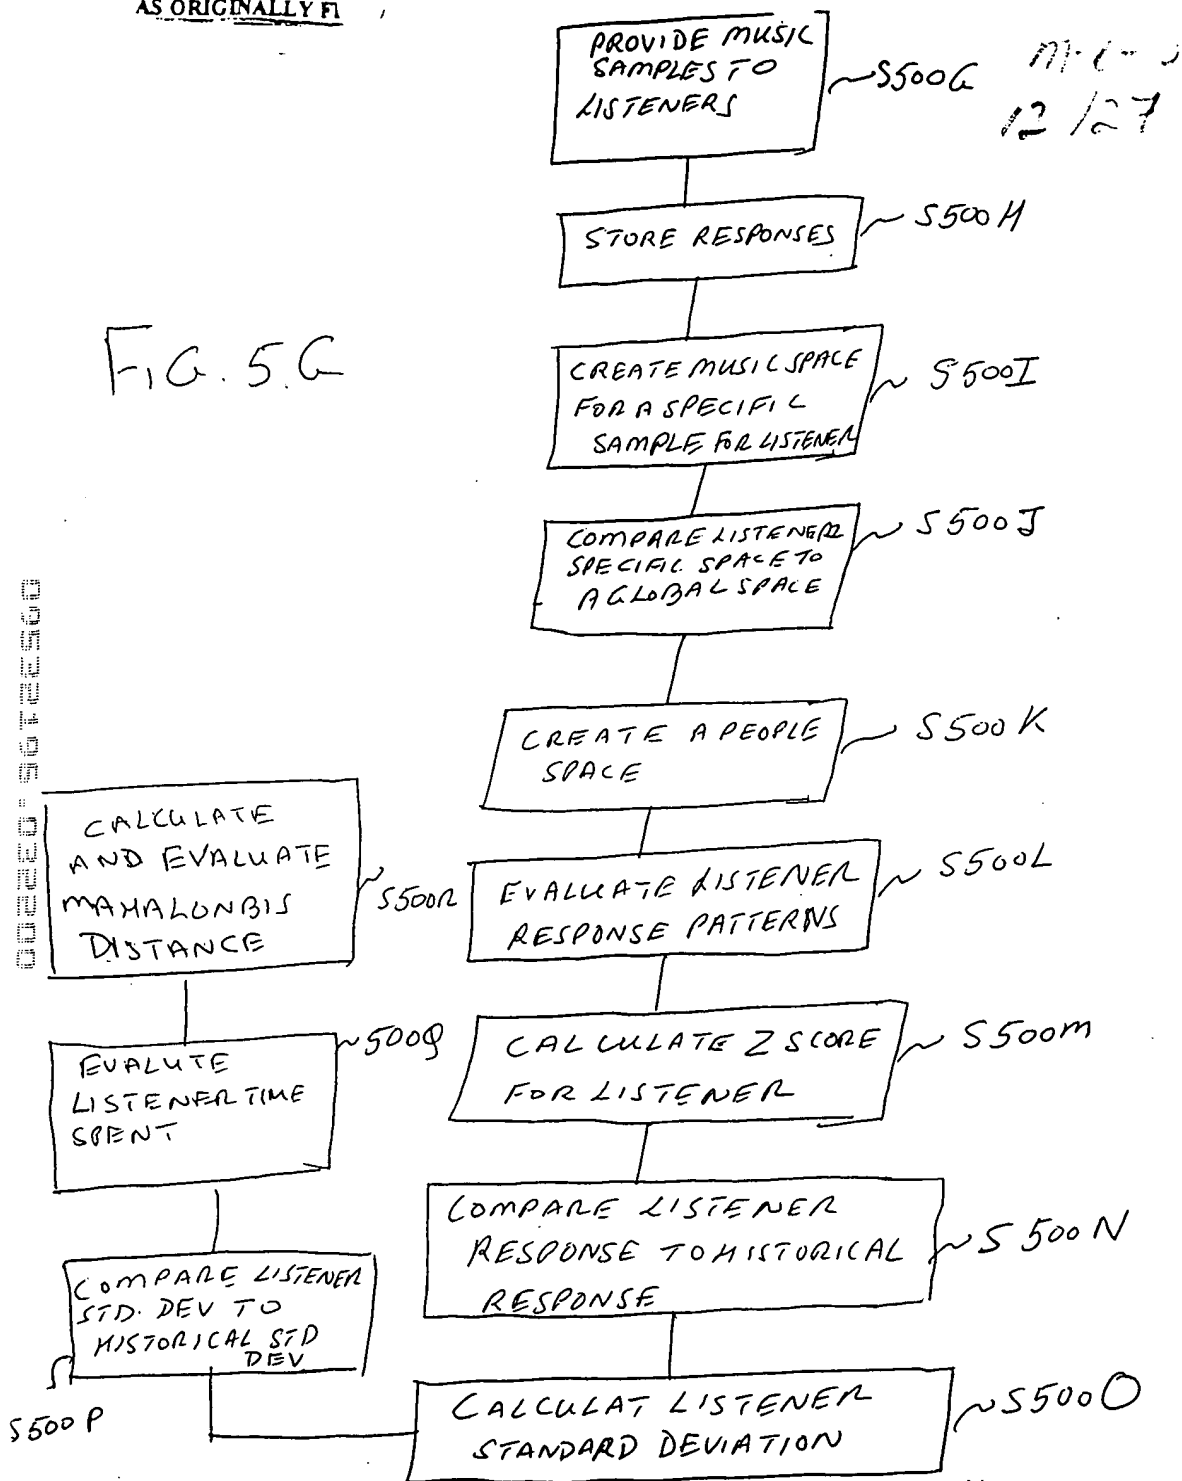 AS ORIGINALLY FI
PROVIDE MUSIC
SAMPLES TO
LISTENERS
S500G
12/27
STORE RESPONSES
S500H
FIG. 5.G
CREATE MUSIC SPACE
FOR A SPECIFIC
SAMPLE FOR LISTENER
S500I
COMPARE LISTENER
SPECIFIC SPACE TO
A GLOBAL SPACE
S500J
CREATE A PEOPLE
SPACE
S500K
EVALUATE LISTENER
RESPONSE PATTERNS
S500L
CALCULATE Z SCORE
FOR LISTENER
S500M
COMPARE LISTENER
RESPONSE TO HISTORICAL
RESPONSE
S500N
CALCULAT LISTENER
STANDARD DEVIATION
S500O
COMPARE LISTENER
STD. DEV TO
HISTORICAL STD
DEV
S500P
EVALUTE
LISTENER TIME
SPENT
500Q
CALCULATE
AND EVALUATE
MAHALONBIS
DISTANCE
S500R